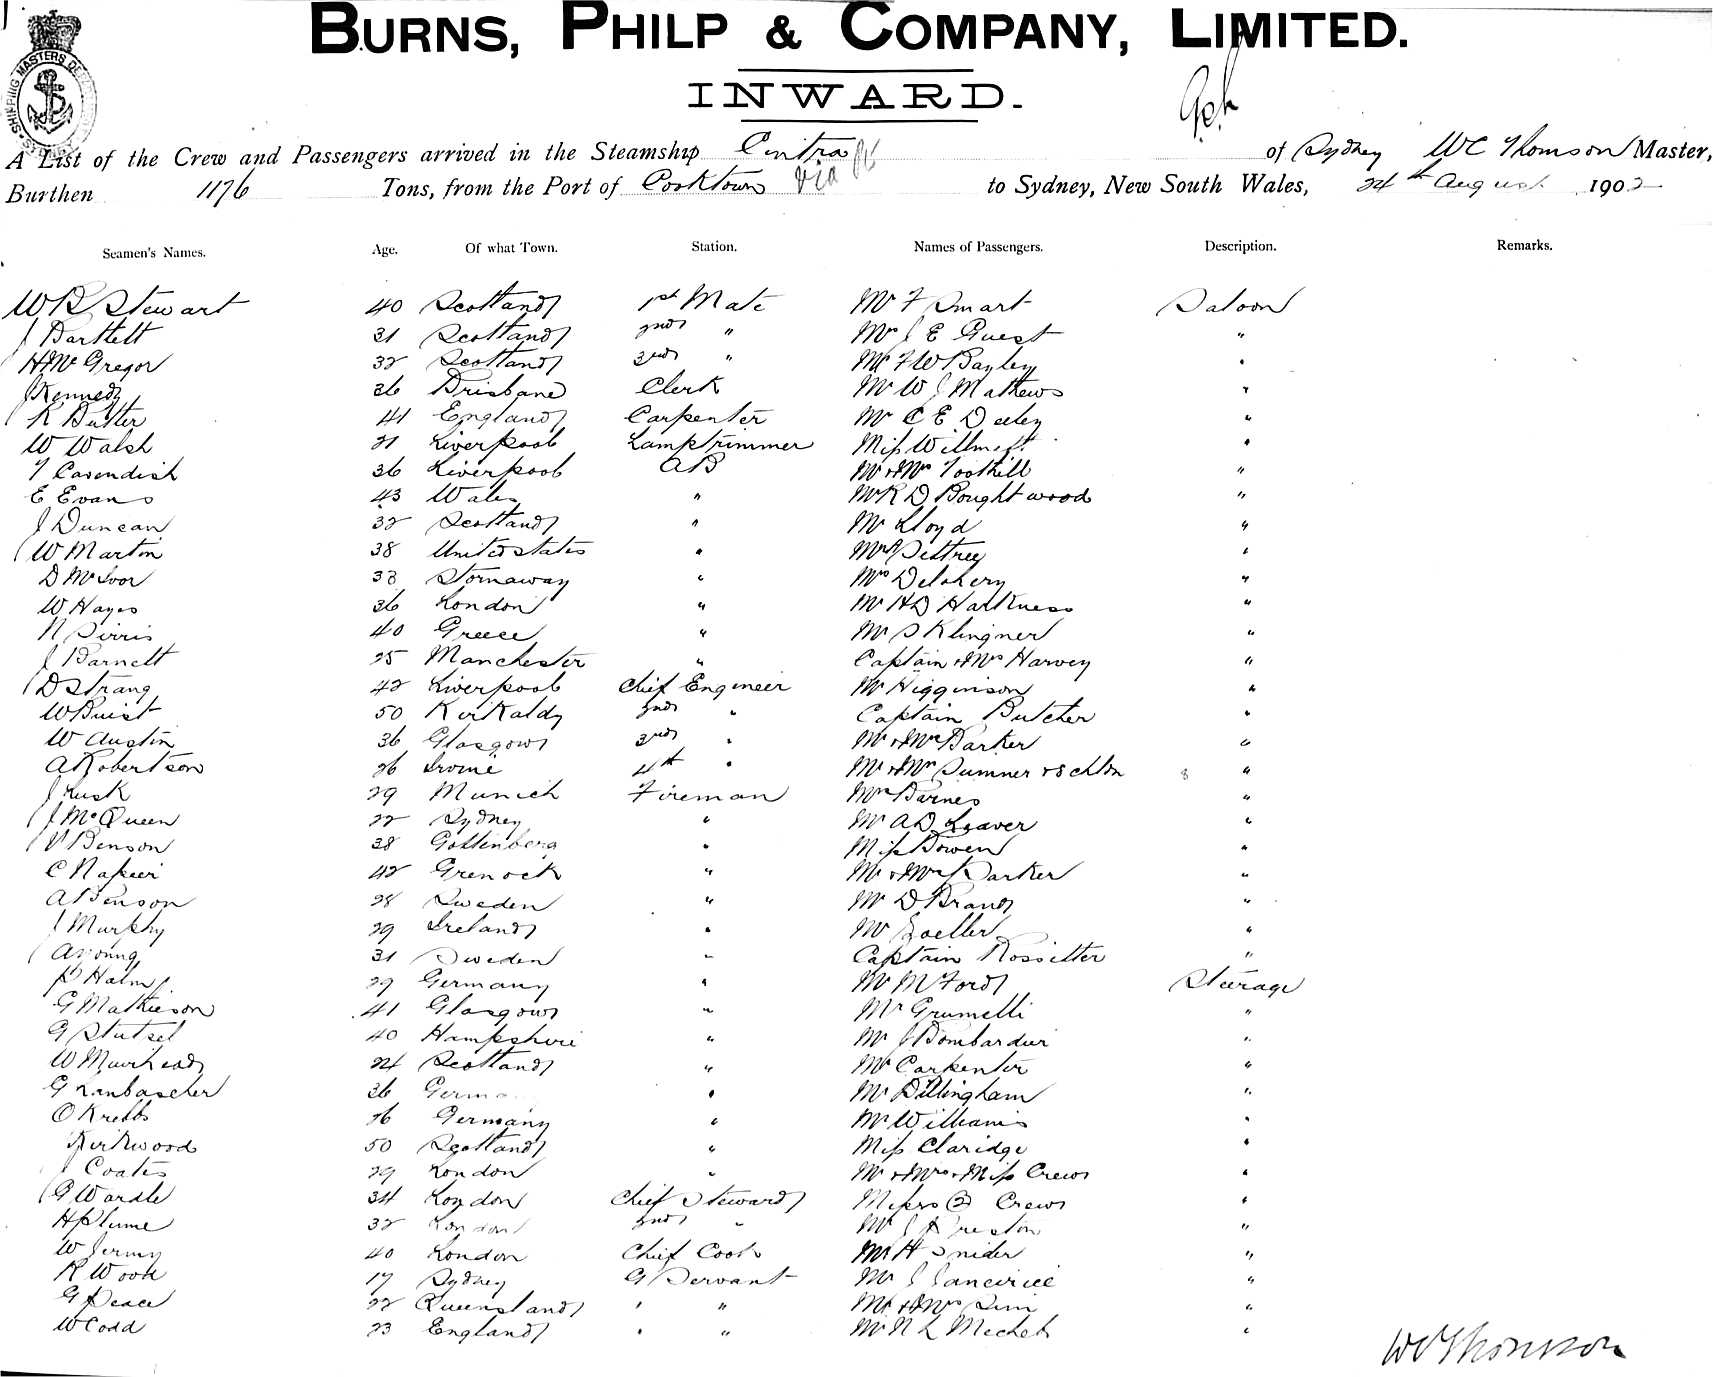 BURNS, PHILP & COMPANY, LIMITED.
INWARD.
SHIPPING MASTERS
A List of the Crew and Passengers arrived in the Steamship Cintra of Sydney WC Thomson Master,
Burthen 1176 Tons, from the Port of Cooktown via to Sydney, New South Wales, 24th August 1902
Seamen's Names. Age. Of what Town. Station. Names of Passengers. Description. Remarks.
W R Stewart 40 Scotland 1st Mate Mr F Smart Saloon
J Bartlett 31 Scotland 2nd " Mr J E Guest "
H McGregor 32 Scotland 3rd " Mr F W Bayley "
J Kennedy 36 Brisbane Clerk Mr W J Mathews "
R Butter 41 England Carpenter Mr C E Deeley "
W Walsh 21 Liverpool Lamptrimmer Miss "
T Cavendish 36 Liverpool AB Mr & Mrs Toothill "
E Evans 43 Wales " Mr R D Boughtwood "
J Duncan 32 Scotland " Mr Lloyd "
W Martin 38 United states " "
D McIvor 33 Stornaway " Mrs "
W Hayes 36 London " Mr H D Harkness "
N Pirris 40 Greece " Mr S Klingner "
J Barnett 25 Manchester " Captain & Mrs Harvey "
D Strang 42 Liverpool Chief Engineer Mr Higginson "
W Buist 50 Kirkaldy 2nd " Captain Butcher "
W Austin 36 Glasgow 3rd " Mr & Mrs Barker "
A Robertson 26 Irvine 4th " Mr & Mrs Sumner & 8 chldn 8 "
J Lusk 29 Munich Fireman Mrs Barnes "
J McQueen 22 Sydney " Mr A D Leaver "
V Benson 38 Gottenberg " Miss Bowen "
C Napier 42 Grenock " Mr & Mrs Parker "
A Benson 28 Sweden " Mr D Brand "
J Murphy 29 Ireland " Mr Zoeller "
A Young 31 Sweden " Captain Rossetter "
P Halm 29 Germany " Mr M Ford Steerage
G Mathieson 41 Glasgow " Mr Grumelli "
G Stutsel 40 Hampshire " Mr J Bombardier "
W Muirhead 24 Scotland " Mr Carpenter "
G Lanbascher 36 Germa " Mr Dillingham "
O Krebbs 26 Germany " Mr Williams "
Kirkwood 50 Scotland " Miss Claridge "
J Coates 29 London " Mr & Mrs & Miss Crews "
G Wardle 34 London Chief Steward Misses (2) Crews "
H Plume 32 London 2nd " Mr J Preston "
W Jermy 40 London Chief Cook Mr H Snider "
R Wook 17 Sydney G Servant Mr J "
G Peace 22 Queensland " " Mr & Mrs Sim "
W Codd 23 England " " Mr N L Mechek "
WC Thomson